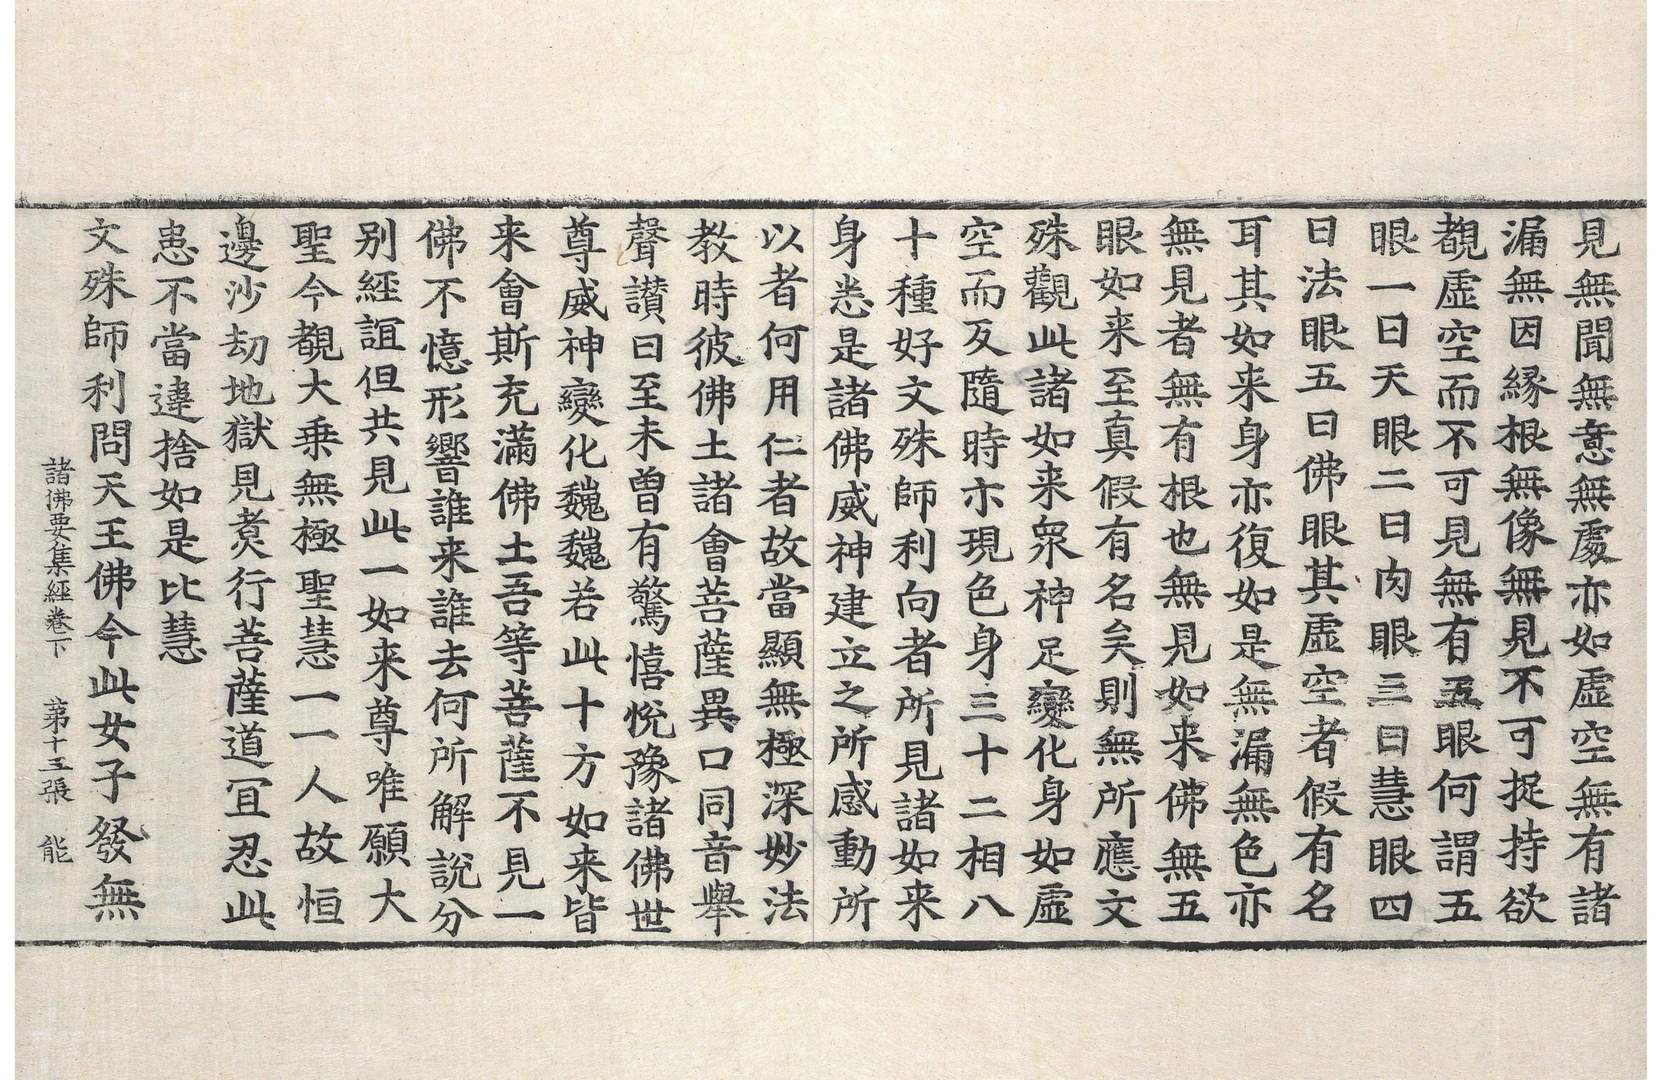 見無聞無意無處亦如虛空無有諸
漏無因縁根無像無見不可捉持欲
覩虛空而不可見無有五眼何謂五
眼一曰天眼二曰肉眼三曰慧眼四
曰法眼五曰佛眼其虛空者假有名
耳其如来身亦復如是無漏無色亦
無見者無有根也無見如来佛無五
眼如来至真假有名矣則無所應文
殊觀此諸如来衆神足變化身如虛
空而反隨時亦現色身三十二相八
十種好文殊師利向者所見諸如来
身悉是諸佛威神建立之所感動所
以者何用仁者故當顯無極深妙法
教時彼佛土諸會菩薩異口同音舉
聲讃曰至未曽有驚憘悅豫諸佛世
尊威神變化巍巍若此十方如来皆
来會斯充滿佛土吾等菩薩不見一
佛不憶形響誰来誰去何所解説分
别經誼但共見此一如来尊唯願大
聖今覩大乗無極聖慧一一人故恒
邊沙劫地獄見煑行菩薩道冝忍此
患不當違捨如是比慧
文殊師利問天王佛今此女子發無
諸佛要集經卷下 苐十三張 能